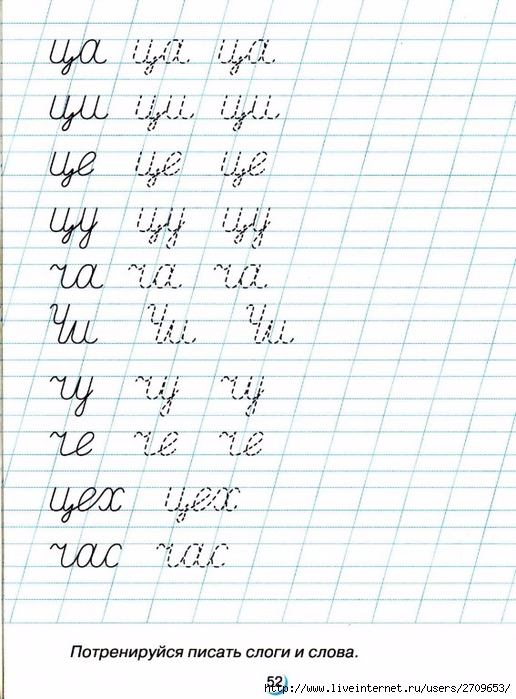 ца ца ца
ци ци ци
це це це
цу цу цу
ча ча ча
Чи Чи Чи
чу чу чу
че че че
цех цех
час час
Потренируйся писать слоги и слова.
52
http://www.liveinternet.ru/users/2709653/